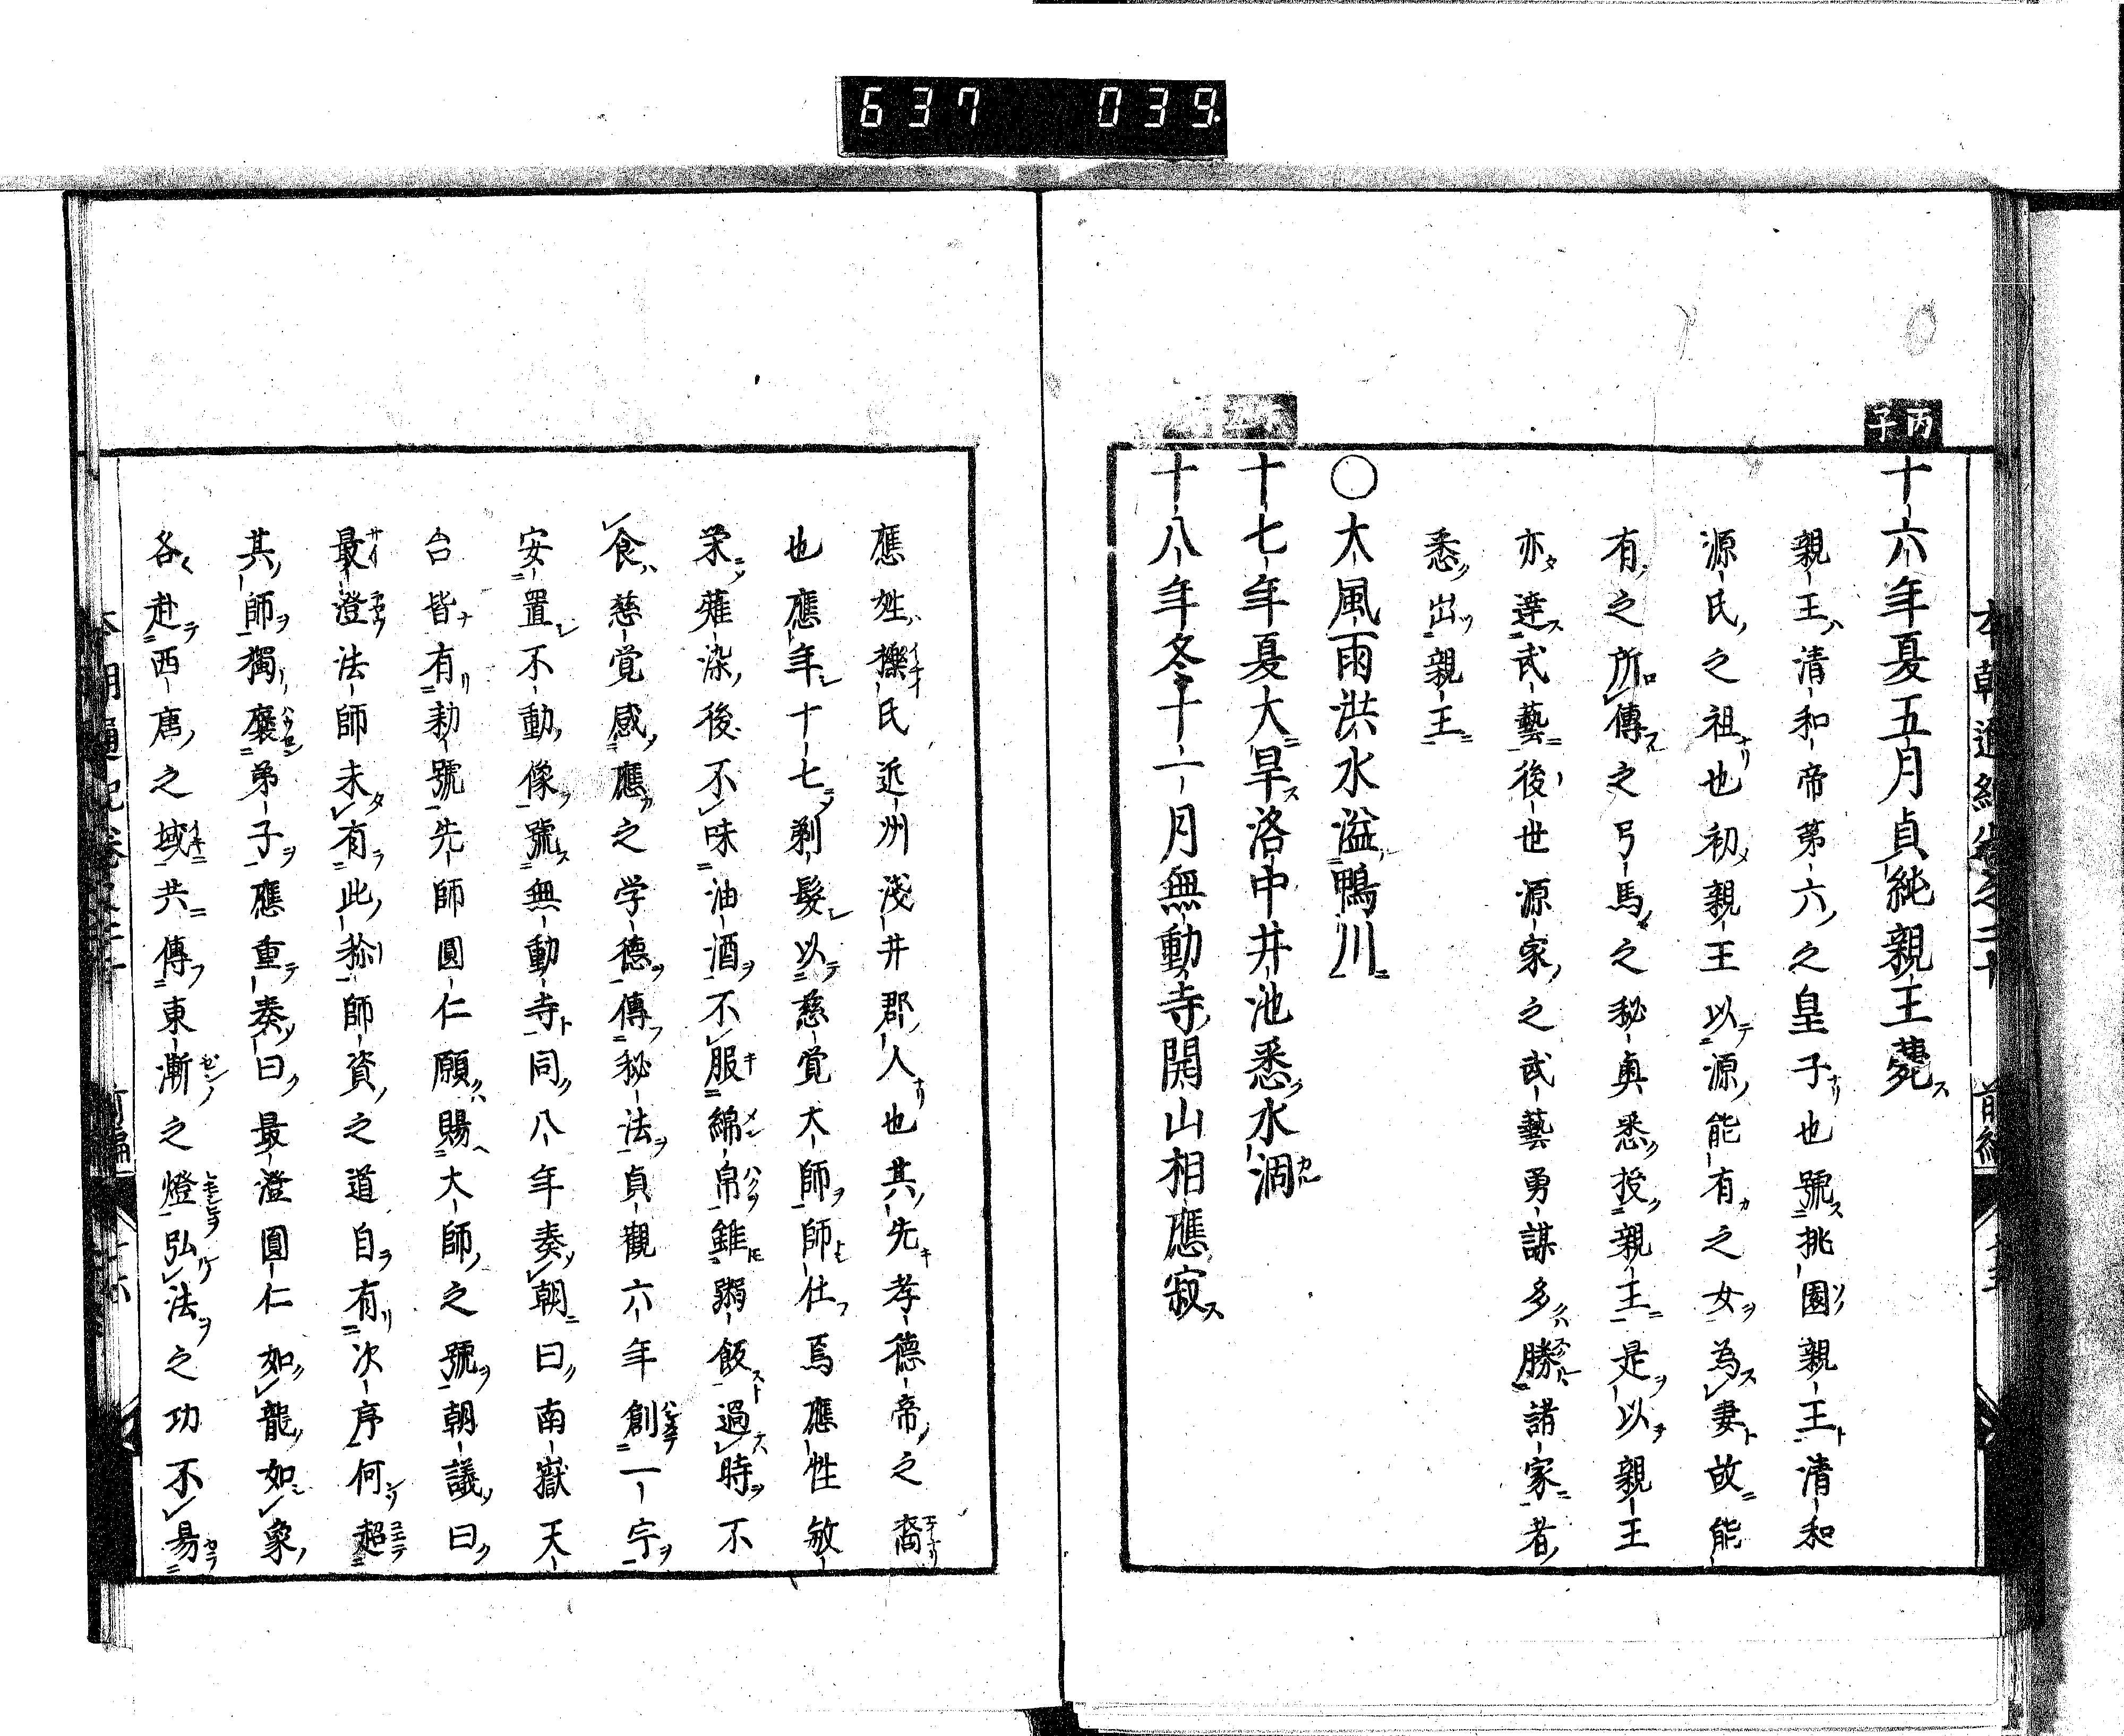 637 039
丙子
十六年夏五月貞純親王薨ス
親王ハ清和帝第六ノ之皇子ナリ也號ス挑園ノ親王ト清和
源氏ノ之祖ナリ也初メ親王以テ源ノ能有カ之女ヲ為ス妻ト故ニ能
有ノ之所ロ傳フル之弓馬ノ之秘奥悉ク授ク親王ニ是ヲ以ヲ親王
亦タ達ス武藝ニ後世源家ノ之武藝勇謀多クハ勝ルヽ諸家ニ者ノ
悉ク出ツ親王ニ
〇大風雨洪水溢ル鴨川ニ
十七年夏大ニ旱ス洛中井池悉ク水涸カル
十八年冬十一月無動寺ノ開山相應寂ス
應姓ハ擽イチイ氏近州淺井郡ノ人ナリ也其ノ先キ孝德帝ノ之裔エイナリ
也應年シ十七ニシテ剃髮シ以テ慈覚大師ヲ師トシ仕フ焉應性敏
栄ニシテ薙染ノ後不味油酒ヲ不服キ綿メン帛ハクヲ雖トモ粥飯スト過レハ時ヲ不
食ハ慈覚感シ應カ之学德ヲ傳フ秘法ヲ貞觀六年創ハシメテ一宇ヲ
安置シ不動ノ像ヲ號ス無動寺ト同ク八年奏シ朝ニ曰ク南嶽天
台皆ナ有リ勅號先師圓仁願クハ賜ヘ大師ノ之號ヲ朝議シ曰ク
最サイ澄チヤウ法師未タ有ラ此ノ称師資ノ之道自ヲ有リ次序何ンソ超コエテ
其ノ師ヲ獨リ褒ハウセン弟子ヲ應重テ奏シ曰ク最澄圓仁如ク龍ノ如シ象ノ
各〱赴テ西唐ノ之域イキニ共ニ傳フ東漸ゼンノ之燈トモシビヲ弘ムルケ法ヲ之功不易カラ